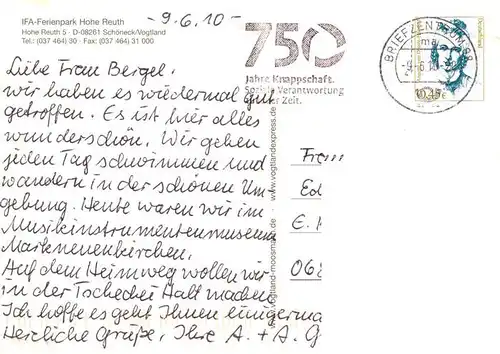 IFA-Ferienpark Hohe Reuth
Hohe Reuth 5 · D-08261 Schöneck/Vogtland
Tel.: (037 464) 30 · Fax: (037 464) 31 000
-9.6.10-
750
Jahre Knappschaft.
Soziale Verantwortung
Zeit.
BRIEFZENTRUM 08
Deutschland
Liebe Frau Bergel.
wir haben es wiedermal gut
getroffen. Es ist hier alles
wunderschön. Wir gehen
jeden Tag schwimmen und
wandern in der schönen Um-
gebung. Heute waren wir im
Musikinstrumentenmuseum
Markneuenkirchen.
Auf dem Heimweg wollen wir
in der Tschechei Halt machen
Ich hoffe es geht Ihnen einigerma
Herzliche Grüße, Ihre A. + A. G
www.vogtlandexpress.de
E.